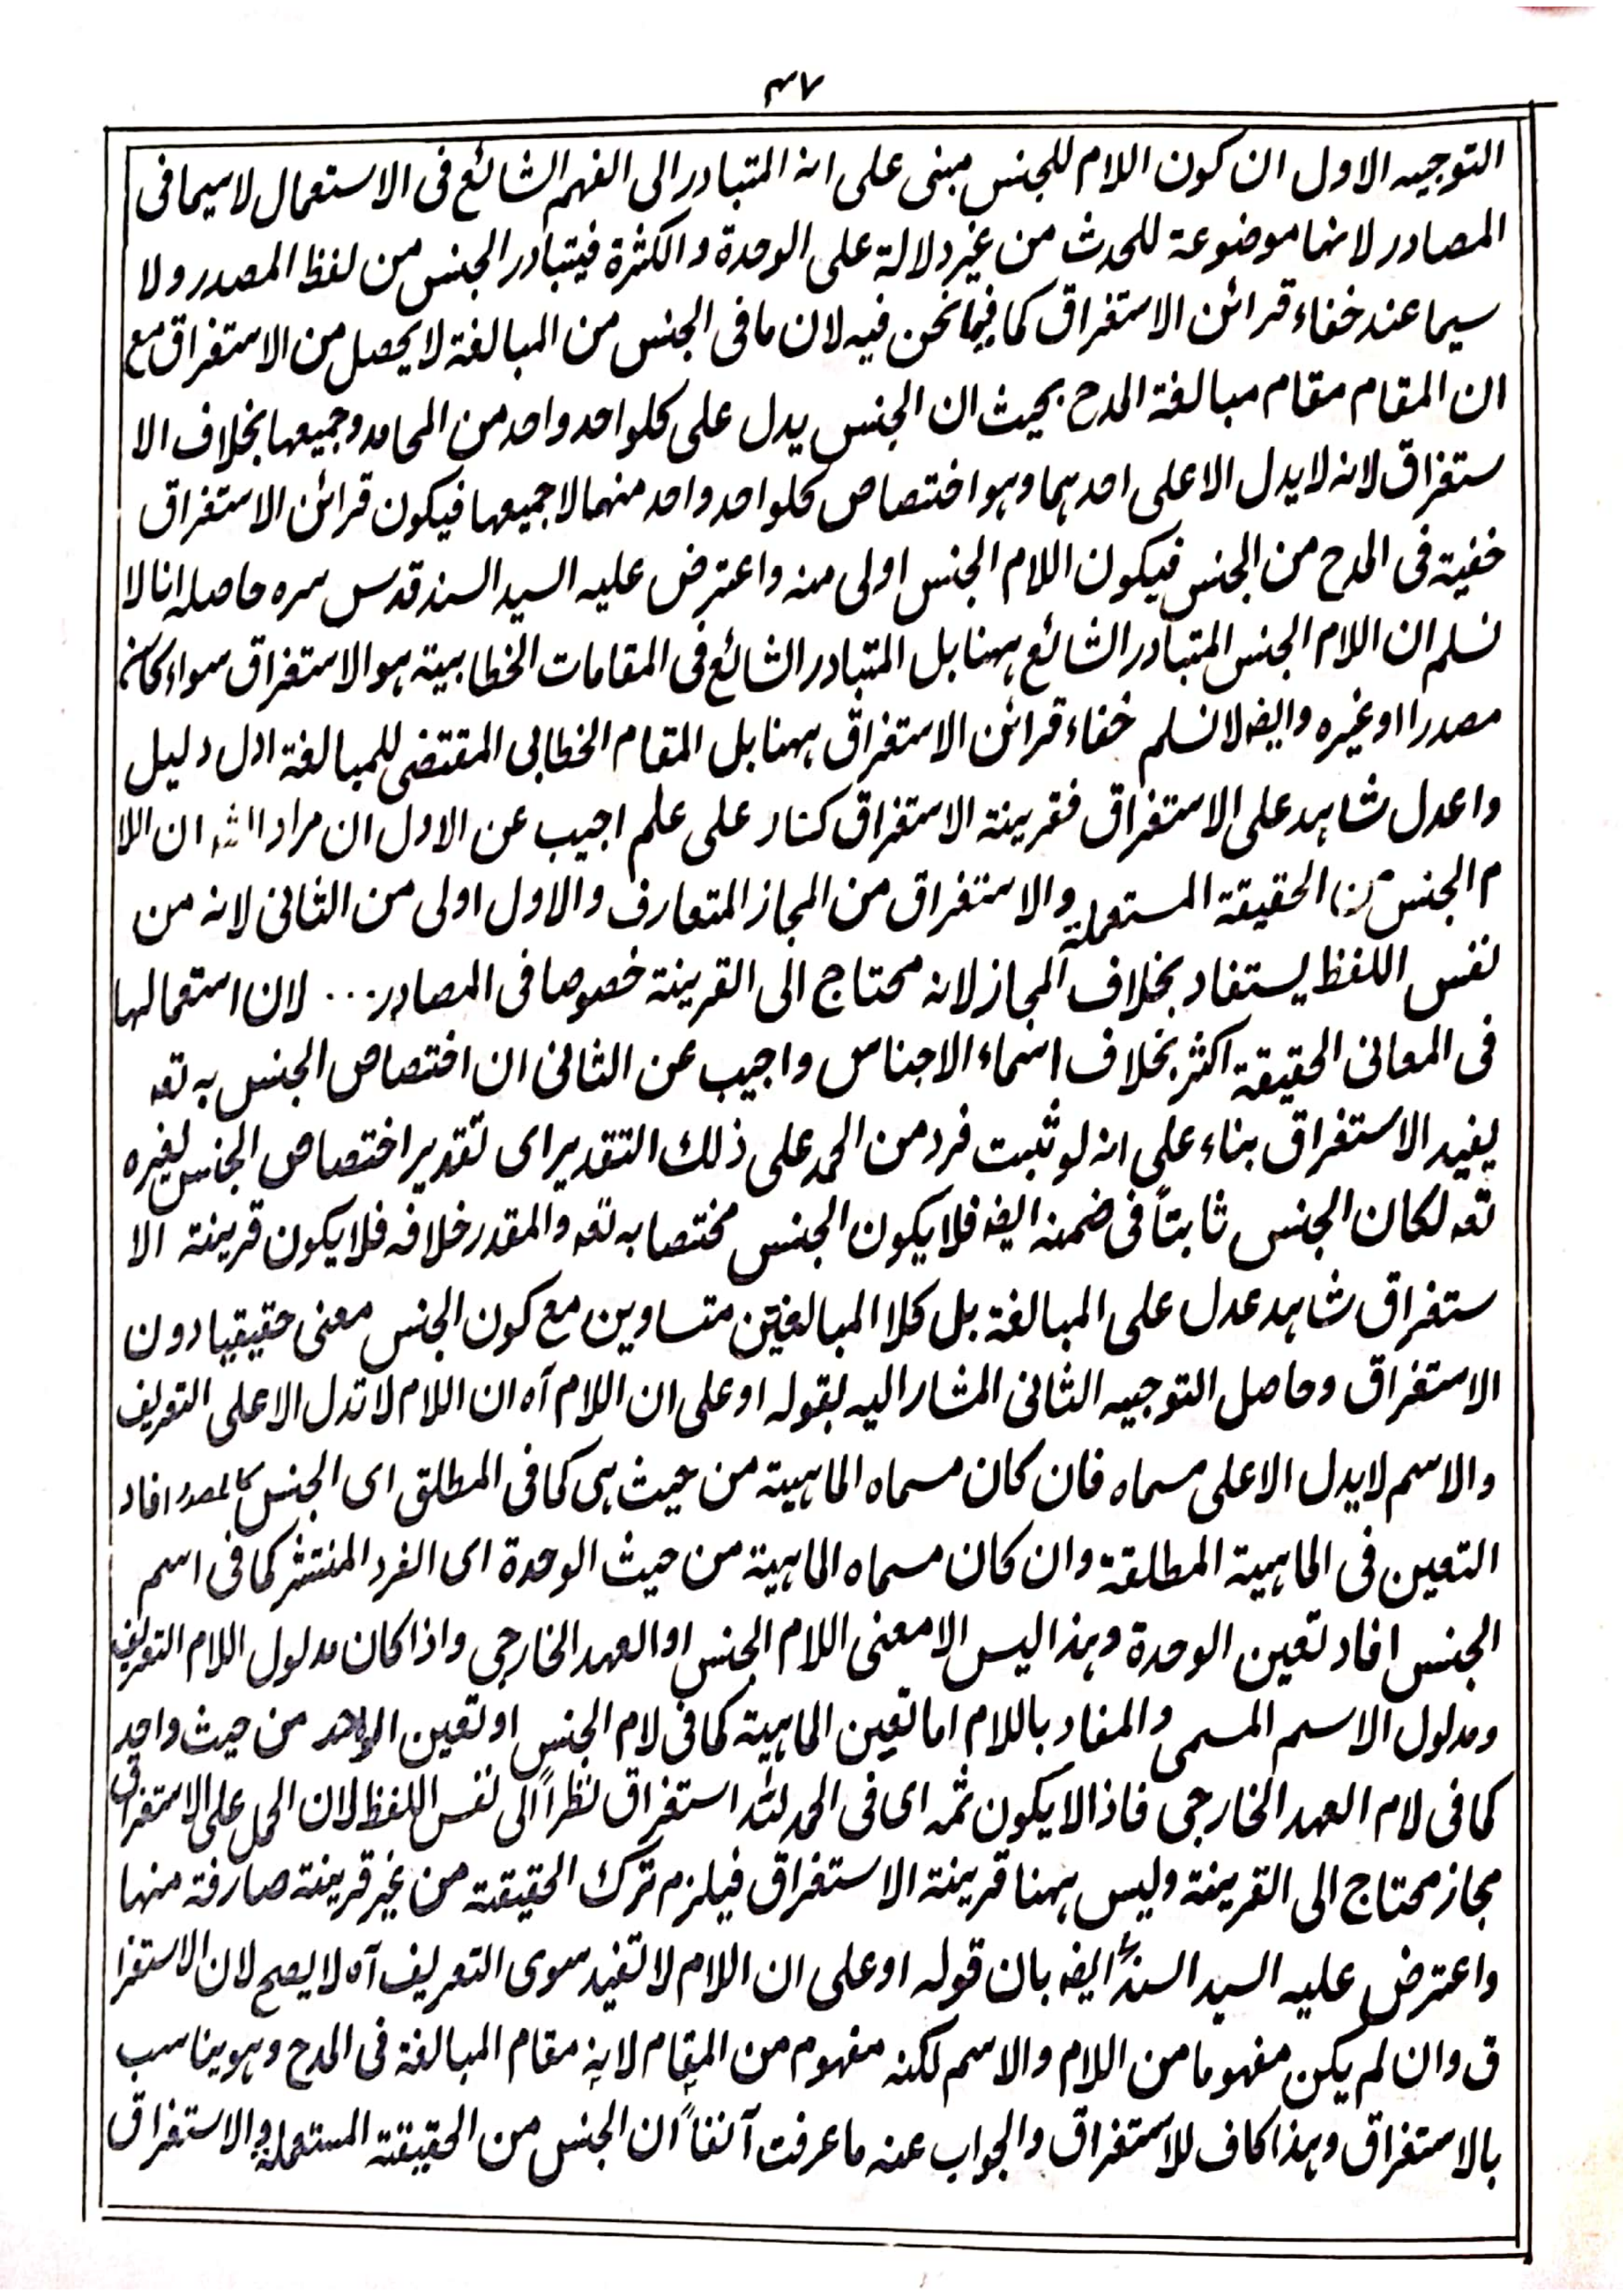 ٣٧
التوجيه الاول ان كون اللام للجنس مبنى على انه المتبادر الى الفهم الشائع فى الاستعمال لاسيما فى
المصادر لانها موضوعة للحدث من غير دلالة على الوحدة والكثرة فيتبادر الجنس من لفظ المصدر ولا
سيما عند خفاء قرائن الاستغراق كما فيما نحن فيه لان ما فى الجنس من المبالغة لا يحصل من الاستغراق مع
ان المقام مقام مبالغة المدح بحيث ان الجنس يدل على كلواحد واحد من المحامد وجميعها بخلاف الا
ستغراق لانه لا يدل الا على احدهما وهو اختصاص كلواحد واحد منهما لا جميعها فيكون قرائن الاستغراق
خفية فى المدح من الجنس فيكون اللام الجنس اولى منه واعترض عليه السيد السند قدس سره حاصله انا لا
نسلم ان اللام الجنس المتبادر الشائع ههنا بل المتبادر الشائع فى المقامات الخطابية هو الاستغراق سواء كانت
مصدرا او غيره وايضا لا نسلم خفاء قرائن الاستغراق ههنا بل المقام الخطابى المقتضى للمبالغة ادل دليل
واعدل شاهد على الاستغراق فقرينة الاستغراق كنار على علم اجيب عن الاول ان مراد الشـ ان اللا
م الجنس من الحقيقة المستعملة والاستغراق من المجاز المتعارف والاول اولى من الثانى لانه من
نفس اللفظ يستفاد بخلاف المجاز لانه محتاج الى القرينة خصوصا فى المصادر... لان استعمالها
فى المعانى الحقيقة اكثر بخلاف اسماء الاجناس واجيب عن الثانى ان اختصاص الجنس به تعہ
يفيد الاستغراق بناء على انه لو ثبت فرد من الحمد على ذلك التقدير اى تقدير اختصاص الجنس لغيره
تعہ لكان الجنس ثابتاً فى ضمنه ايضا فلا يكون الجنس مختصا به تعہ والمقدر خلافه فلا يكون قرينة الا
ستغراق شاهد عدل على المبالغة بل كلا المبالغتين متساوين مع كون الجنس معنى حقيقيا دون
الاستغراق وحاصل التوجيه الثانى المشار اليه بقوله او على ان اللام آه ان اللام لا تدل الا على التعريف
والاسم لا يدل الا على مسماه فان كان مسماه الماهية من حيث هى كما فى المطلق اى الجنس كالمصدر افاد
التعين فى الماهية المطلقة وان كان مسماه الماهية من حيث الوحدة اى الفرد المنتشر كما فى اسم
الجنس افاد تعين الوحدة وهذا ليس الا معنى اللام الجنس او العهد الخارجى واذا كان مدلول اللام التعريف
ومدلول الاسم المسمى والمفاد باللام اما تعين الماهية كما فى لام الجنس او تعين الواحد من حيث واحد
كما فى لام العهد الخارجى فاذا لا يكون ثمه اى فى الحمد لله استغراق نظراً الى نفس اللفظ لان الحمل على الاستغراق
مجاز محتاج الى القرينة وليس ههنا قرينة الاستغراق فيلزم ترك الحقيقة من غير قرينة صارفة منها
واعترض عليه السيد السند ايضا بان قوله او على ان اللام لا تفيد سوى التعريف آه لا يصح لان الاستغرا
ق وان لم يكن مفهوما من اللام والاسم لكنه مفهوم من المقام لانه مقام المبالغة فى المدح وهو يناسب
بالاستغراق وهذا كاف للاستغراق والجواب عنه ما عرفت آنفاً ان الجنس من الحقيقة المستعملة والاستغراق